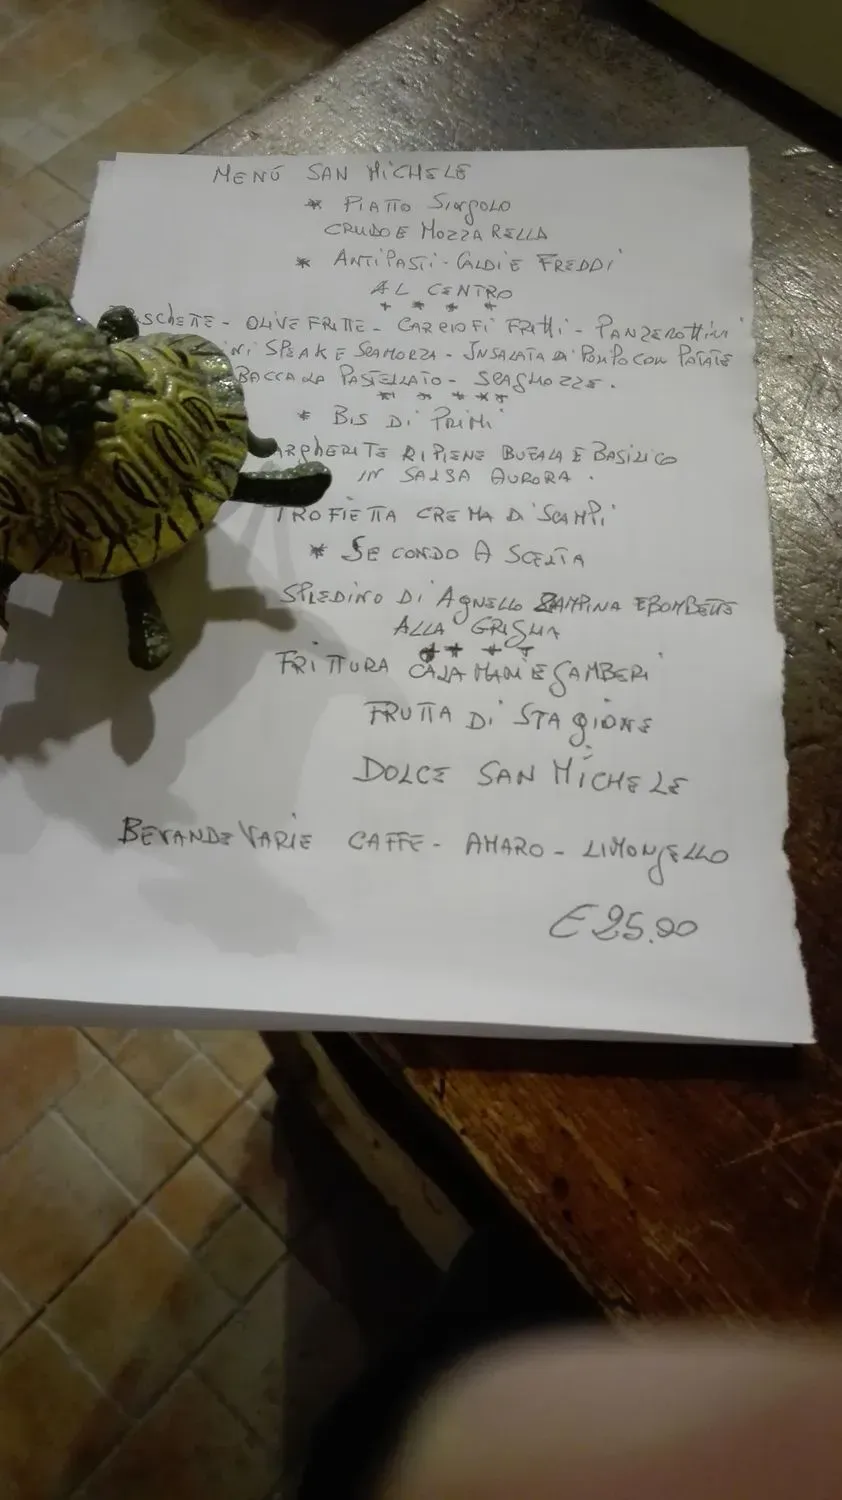 MENÚ SAN MICHELE
* PIATTO SINGOLO
CRUDO E MOZZARELLA
* ANTIPASTI - CALDI E FREDDI
AL CENTRO
* * * *
SCHETTE - OLIVE FRITTE - CARCIOFI FRITTI - PANZEROTTINI
NI SPEAK E SCAMORZA - INSALATA DI POLPO CON PATATE
BACCALA PASTELLATO - SGAGLIOZZE.
* * * * *
* BIS DI PRIMI
ARGHERITE RIPIENE BUFALA E BASILICO
IN SALSA AURORA.
TROFIETTA CREMA DI SCAMPI
* SECONDO A SCELTA
SPIEDINO DI AGNELLO ZAMPINA E BOMBETTE
ALLA GRIGLIA
* * * *
FRITTURA CALAMARI E GAMBERI
FRUTTA DI STAGIONE
DOLCE SAN MICHELE
BEVANDE VARIE CAFFE - AMARO - LIMONGELLO
€ 25.00